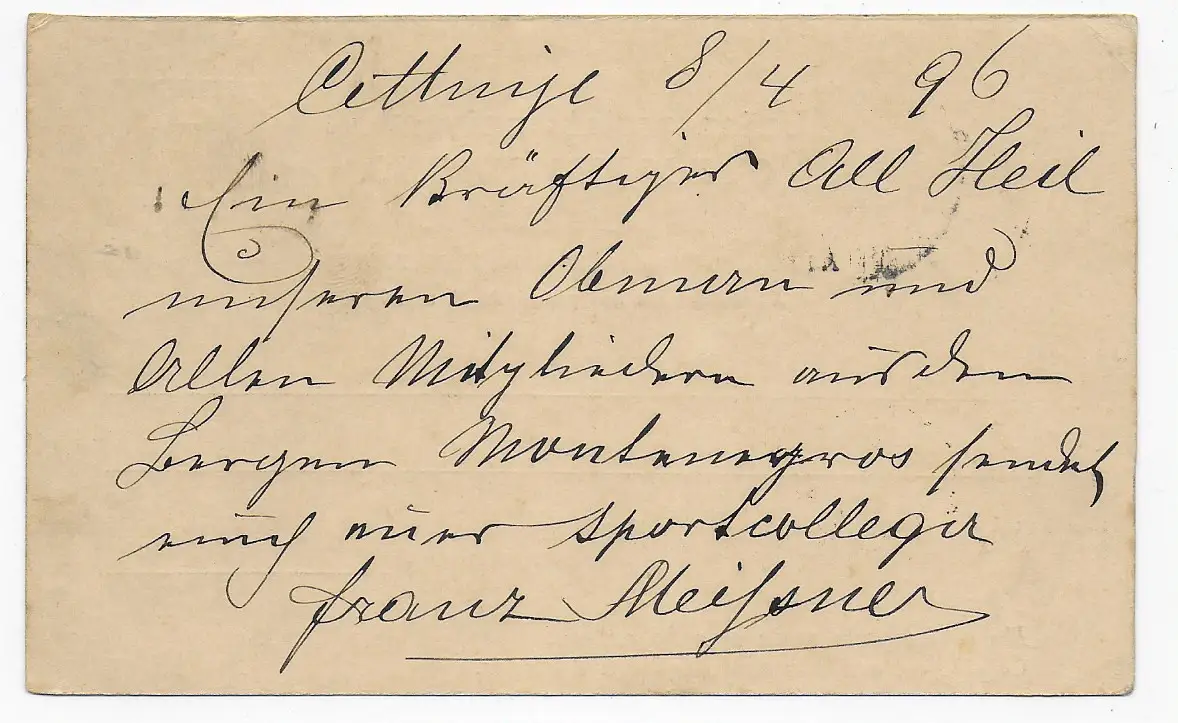 Cettinje 8/4 96
Ein Kräftiges All Heil
unseren Obmann und
Allen Mitgliedern aus den
Bergen Montenegros sendet
euch euer Sportcollega
Franz Meißner